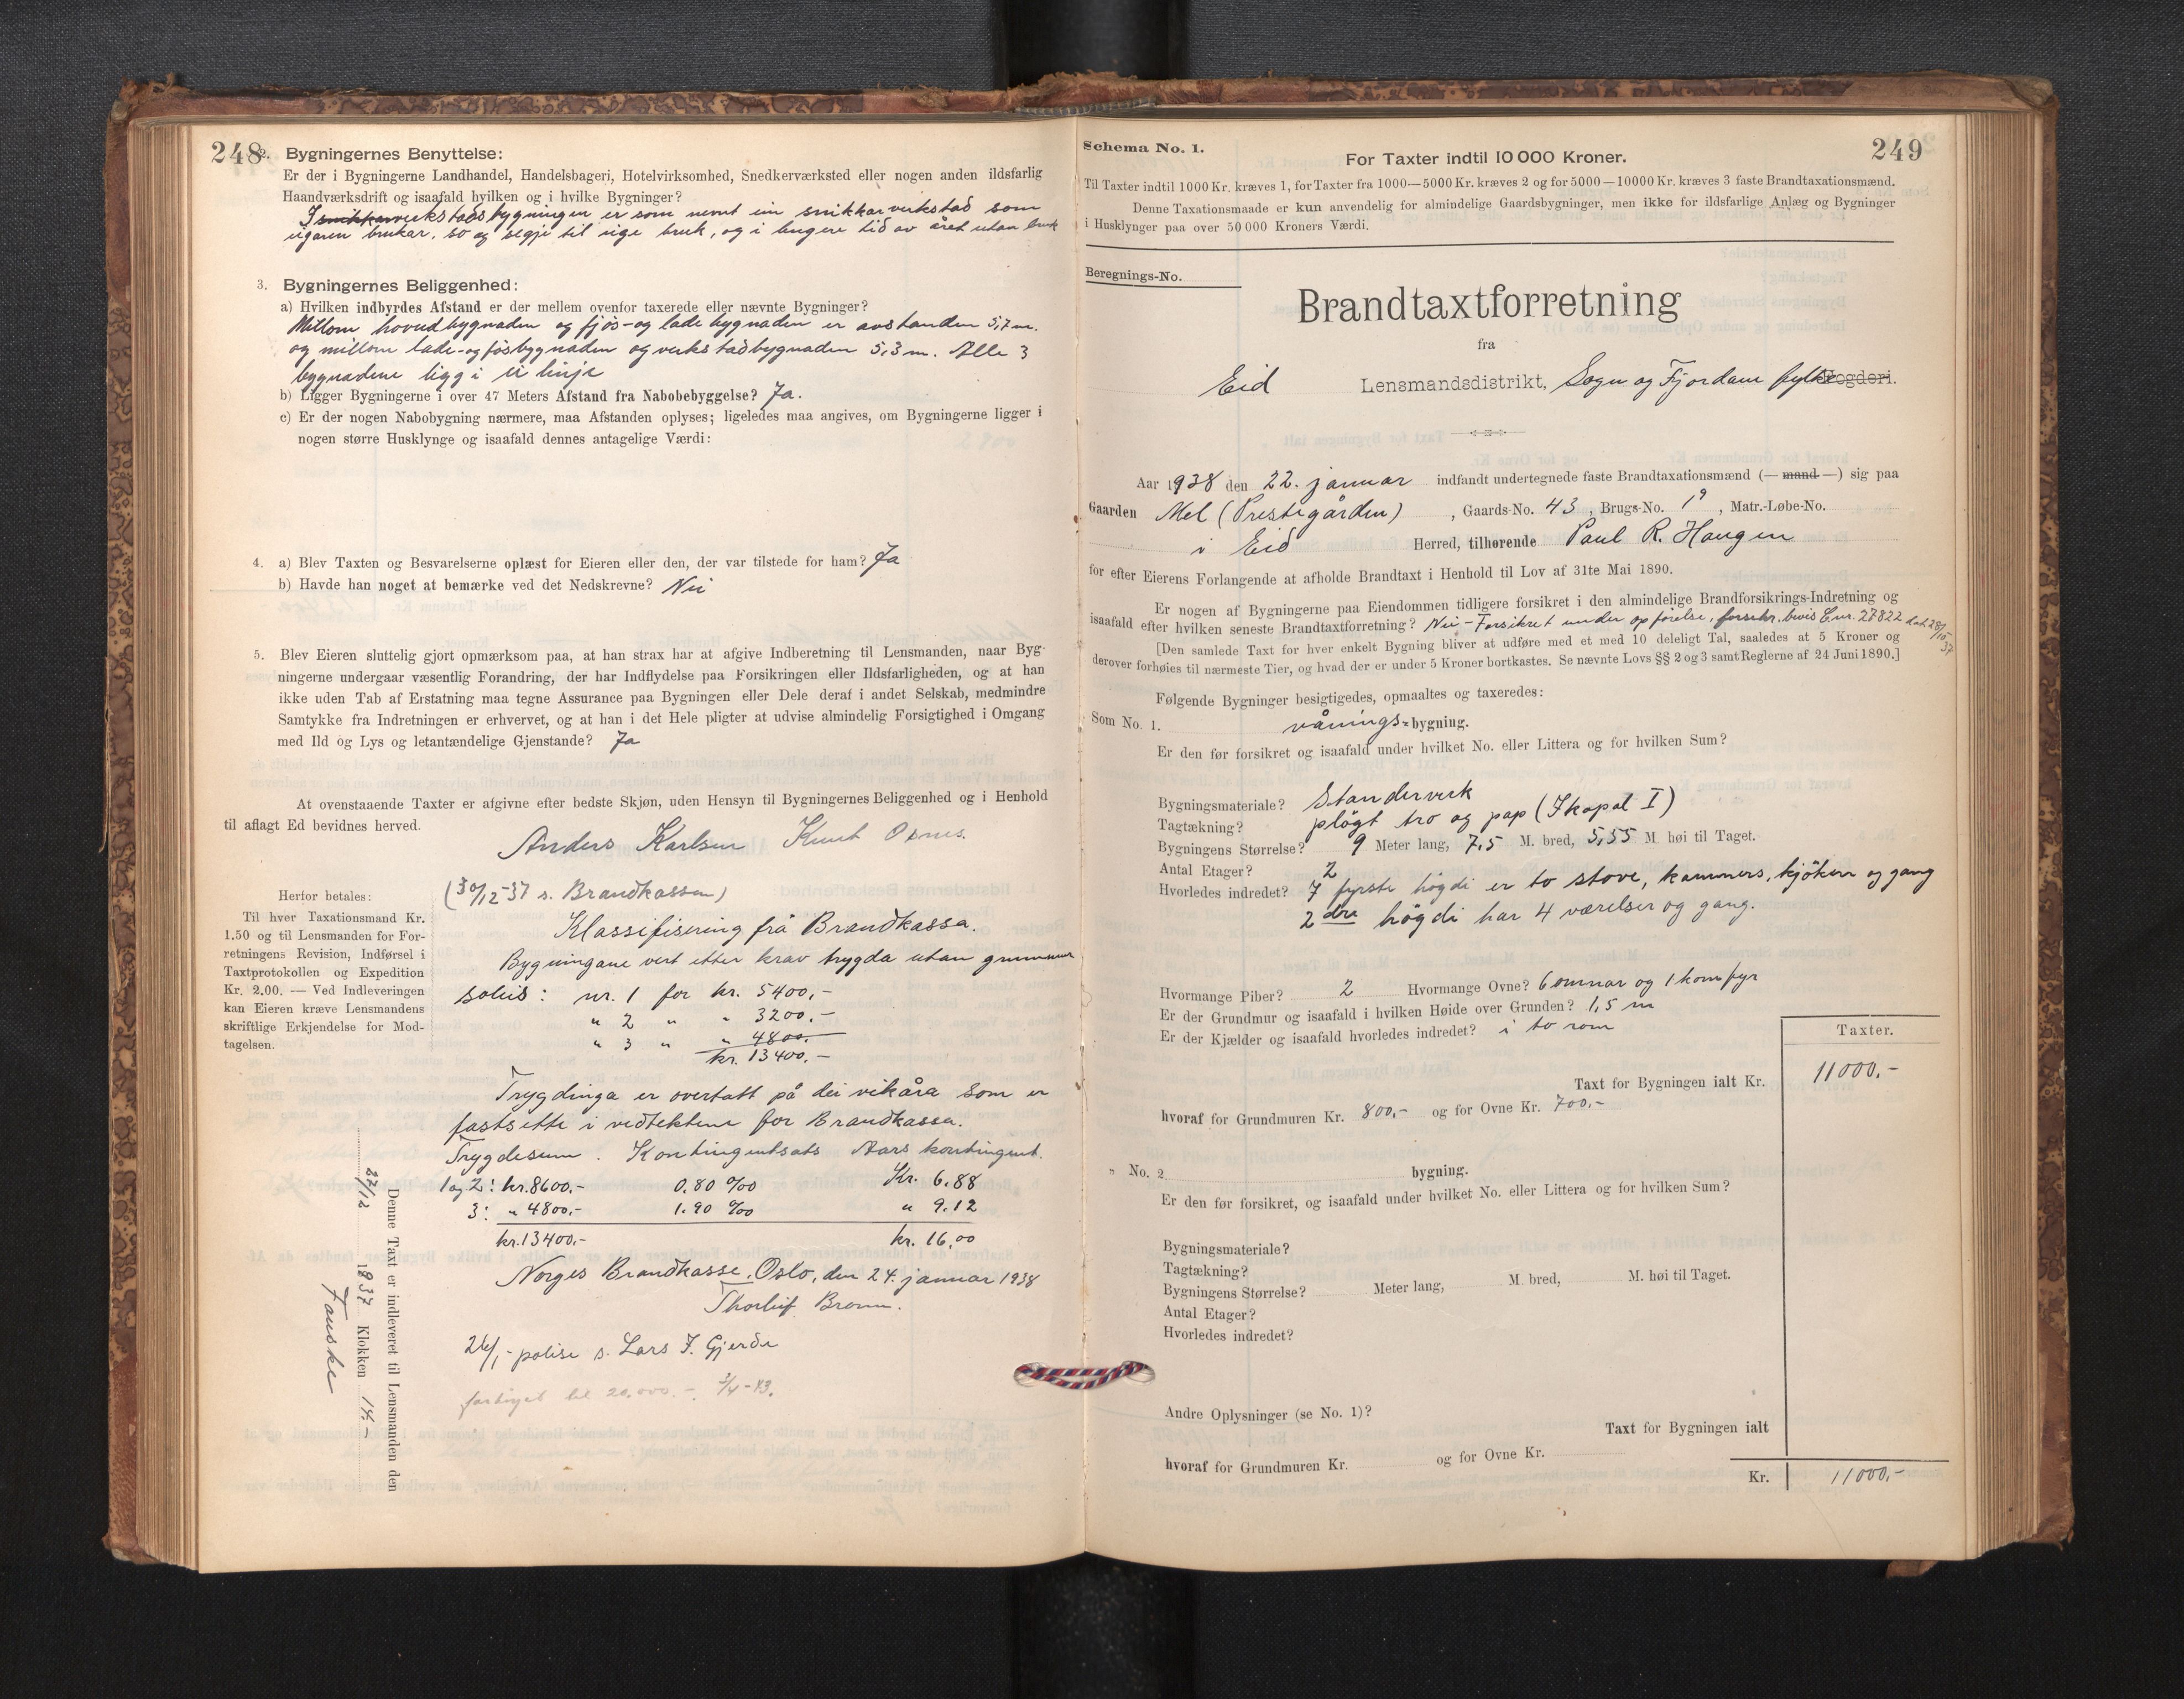 248
2. Bygningernes Benyttelse:
Er der i Bygningerne Landhandel, Handelsbageri, Hotelvirksomhed, Snedkerværksted eller nogen anden ildsfarlig
Haandværksdrift og isaafald hvilken og i hvilke Bygninger?
I snikkarverkstadsbygningen er som nemt ein snikkarverkstad som
eigaren brukar, so og segje til eige bruk, og i lengere tid av året utan bruk
3. Bygningernes Beliggenhed:
a) Hvilken indbyrdes Afstand er der mellem ovenfor taxerede eller nævnte Bygninger?
Millom hovudbygnaden og fjøs- og ladebygnaden er avstanden 5,7 m.
og millom lade- og fjøsbygnaden og verkstadbygnaden 5,3 m. Alle 3
bygnadene ligg i ei linje
b) Ligger Bygningerne i over 47 Meters Afstand fra Nabobebyggelse? Ja.
c) Er der nogen Nabobygning nærmere, maa Afstanden oplyses; ligeledes maa angives, om Bygningerne ligger i
nogen større Husklynge og isaafald dennes antagelige Værdi:
4. a) Blev Taxten og Besvarelserne oplæst for Eieren eller den, der var tilstede for ham? Ja
b) Havde han noget at bemærke ved det Nedskrevne? Nei
5. Blev Eieren sluttelig gjort opmærksom paa, at han strax har at afgive Indberetning til Lensmanden, naar Byg-
ningerne undergaar væsentlig Forandring, der har Indflydelse paa Forsikringen eller Ildsfarligheden, og at han
ikke uden Tab af Erstatning maa tegne Assurance paa Bygningen eller Dele deraf i andet Selskab, medmindre
Samtykke fra Indretningen er erhvervet, og at han i det Hele pligter at udvise almindelig Forsigtighed i Omgang
med Ild og Lys og letantændelige Gjenstande? Ja
At ovenstaaende Taxter er afgivne efter bedste Skjøn, uden Hensyn til Bygningernes Beliggenhed og i Henhold
til aflagt Ed bevidnes herved.
Anders Karlsen Knut
Herfor betales:
Til hver Taxationsmand Kr.
1.50 og til Lensmanden for For-
retningens Revision, Indførsel i
Taxtprotokollen og Expedition
Kr. 2.00. — Ved Indleveringen
kan Eieren kræve Lensmandens
skriftlige Erkjendelse for Mod-
tagelsen.
(30/12-37 s. Brandkassen)
Klassifisering frå Brandkassa.
Bygningane vert etter krav trygda utan grunnmur
soleis: nr. 1 for kr. 5400,-
" 2 " " 3200,-
" 3 " " 4800,-
kr. 13400,-
Trygdinga er overtatt på dei vilkåra som er
fastsette i vedtektene for Brandkassa.
Trygdesum. Kontingentsats Aars kontingent.
1 og 2: kr. 8600,- 0.80 ‰ Kr. 6,88
3: " 4800,- 1.90 ‰ " 9,12
kr. 13400,- kr. 16,00
Norges Brandkasse, Oslo, den 24. januar 1938
Thorleif
26/1- polise s. Lars J. Gjerde
forhøyet til 20.000.- 3/4-43.
Denne Taxt er indleveret til Lensmanden den
22/12 1937 Klokken 14.-
Fauske
249
Schema No. 1.
For Taxter indtil 10 000 Kroner.
Til Taxter indtil 1000 Kr. kræves 1, for Taxter fra 1000—5000 Kr. kræves 2 og for 5000—10000 Kr. kræves 3 faste Brandtaxationsmænd.
Denne Taxationsmaade er kun anvendelig for almindelige Gaardsbygninger, men ikke for ildsfarlige Anlæg og Bygninger
i Husklynger paa over 50 000 Kroners Værdi.
Beregnings-No.
Brandtaxtforretning
fra
Eid Lensmandsdistrikt, Sogn og Fjordane fylke Fogderi.
Aar 1938 den 22. januar indfandt undertegnede faste Brandtaxationsmænd (— mand —) sig paa
Gaarden Mel (Prestegården), Gaards-No. 43, Brugs-No. 19, Matr.-Løbe-No.
i Eid Herred, tilhørende Paul R. Haugen
for efter Eierens Forlangende at afholde Brandtaxt i Henhold til Lov af 31te Mai 1890.
Er nogen af Bygningerne paa Eiendommen tidligere forsikret i den almindelige Brandforsikrings-Indretning og
isaafald efter hvilken seneste Brandtaxtforretning? Nei - Forsikret under opførelse, forsikr. bevis E nr. 27822 dat. 28/10 37
[Den samlede Taxt for hver enkelt Bygning bliver at udføre med et med 10 deleligt Tal, saaledes at 5 Kroner og
derover forhøies til nærmeste Tier, og hvad der er under 5 Kroner bortkastes. Se nævnte Lovs §§ 2 og 3 samt Reglerne af 24 Juni 1890.]
Følgende Bygninger besigtigedes, opmaaltes og taxeredes:
Som No. 1. vånings-bygning.
Er den før forsikret og isaafald under hvilket No. eller Littera og for hvilken Sum?
Bygningsmateriale? Standerverk
Tagtækning? pløgt tro og pap (Ikopal I)
Bygningens Størrelse? 9 Meter lang, 7,5 M. bred, 5,55 M høi til Taget.
Antal Etager? 2
Hvorledes indredet? I fyrste høgdi er to stove, kammers, kjøken og gang
2dre høgdi har 4 værelser og gang.
Hvormange Piber? 2 Hvormange Ovne? 6 omnar og 1 komfyr
Er der Grundmur og isaafald i hvilken Høide over Grunden? 1,5 m
Er der Kjælder og isaafald hvorledes indredet? i to rom
Taxter.
Taxt for Bygningen ialt Kr. 11000.-
hvoraf for Grundmuren Kr. 800,- og for Ovne Kr. 700,-
" No. 2 bygning.
Er den før forsikret, og isaafald under hvilket No. eller Littera og for hvilken Sum?
Bygningsmateriale?
Tagtækning?
Bygningens Størrelse? Meter lang, M. bred, M. høi til Taget.
Antal Etager?
Hvorledes indredet?
Andre Oplysninger (se No. 1)?
Taxt for Bygningen ialt
hvoraf for Grundmuren Kr. og for Ovne Kr.
Kr. 11000,-